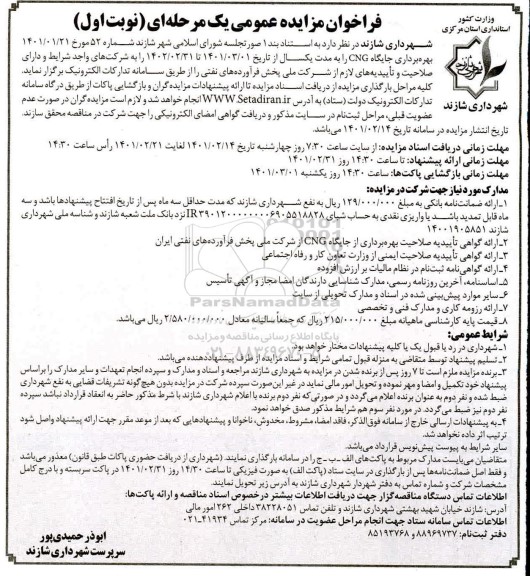 وزارت کشور
استانداری استان مرکزی
شهرداری شازند
فراخوان مزایده عمومی یک مرحله‌ای (نوبت اول)
شهرداری شازند در نظر دارد به استناد بند ۱ صورتجلسه شورای اسلامی شهر شازند شماره ۵۲ مورخ ۱۴۰۱/۰۱/۲۱
بهره‌برداری جایگاه CNG را به مدت یکسال از تاریخ ۱۴۰۱/۰۳/۰۱ تا ۱۴۰۲/۰۲/۳۱ را به شرکت‌های واجد شرایط و دارای
صلاحیت و تأییدیه‌های لازم از شرکت ملی پخش فرآورده‌های نفتی را از طریق سامانه تدارکات الکترونیک برگزار نماید.
کلیه مراحل بارگذاری مزایده از دریافت اسناد مزایده تا ارائه پیشنهادات مزایده گران و بازگشایی پاکات از طریق درگاه سامانه
تدارکات الکترونیک دولت (ستاد) به آدرس WWW.Setadiran.ir انجام خواهد شد و لازم است مزایده گران در صورت عدم
عضویت قبلی، مراحل ثبت‌نام در سایت مذکور و دریافت گواهی امضای الکترونیکی را جهت شرکت در مناقصه محقق سازند.
تاریخ انتشار مزایده در سامانه تاریخ ۱۴۰۱/۰۲/۱۴ می‌باشد.
مهلت زمانی دریافت اسناد مزایده: از سایت ساعت ۷:۳۰ روز چهارشنبه تاریخ ۱۴۰۱/۰۲/۱۴ لغایت ۱۴۰۱/۰۲/۲۱ رأس ساعت ۱۴:۳۰
مهلت زمانی ارائه پیشنهاد: تا ساعت ۱۴:۳۰ روز ۱۴۰۱/۰۲/۳۱
مهلت زمانی بازگشایی پاکت‌ها: ساعت ۱۴:۳۰ روز یکشنبه ۱۴۰۱/۰۳/۰۱
مدارک مورد نیاز جهت شرکت در مزایده:
۱-ارائه ضمانت‌نامه بانکی به مبلغ ۱۲۹/۰۰۰/۰۰۰ ریال به نفع شهرداری شازند که مدت حداقل سه ماه پس از تاریخ افتتاح پیشنهادها باشد و سه
ماه قابل تمدید باشد یا واریزی نقدی به حساب شبای
نزد بانک ملت شعبه شازند و شناسه ملی شهرداری
شازند ۱۴۰۰۱۹۰۵۸۵۱
۲-ارائه گواهی تأییدیه صلاحیت بهره‌برداری از جایگاه CNG از شرکت ملی پخش فرآورده‌های نفتی ایران
۳-ارائه گواهی تأییدیه صلاحیت ایمنی از وزارت تعاون کار و رفاه اجتماعی
۴-ارائه گواهی‌نامه ثبت‌نام در نظام مالیات بر ارزش افزوده
۵-اساسنامه، آخرین روزنامه رسمی، مدارک شناسایی دارندگان امضا مجاز و آگهی تأسیس
۶-سایر موارد پیش‌بینی شده در اسناد و مدارک تحویلی از سایت
۷-ارائه رزومه کاری و مدارک فنی و تخصصی
۸-قیمت پایه کارشناسی ماهیانه مبلغ ۲۱۵/۰۰۰/۰۰۰ ریال که جمعاً سالیانه معادل ۲/۵۸۰/۰۰۰/۰۰۰ ریال می‌باشد.
شرایط عمومی:
۱-شهرداری در رد یا قبول یک یا کلیه پیشنهادات مختار خواهد بود.
۲-تسلیم پیشنهاد توسط متقاضی به منزله قبول تمامی شرایط و اسناد مزایده از طرف پیشنهاددهنده می‌باشد.
۳-برنده مزایده ملزم است تا ۷ روز پس از برنده شدن در مزایده به شهرداری شازند مراجعه و اسناد و مدارک و سپرده انجام تعهدات و سایر مدارک را براساس
پیشنهاد خود تکمیل و امضا و مهر نموده و تحویل امور مالی نماید در غیر این صورت سپرده شرکت در مزایده بدون هیچ‌گونه تشریفات قضایی به نفع شهرداری
ضبط شده و نفر دوم به عنوان برنده اعلام می‌گردد و در صورتی که نفر دوم برنده با اعلام شهرداری شازند با شرط مذکور حاضر به انعقاد قرارداد نباشد سپرده
نفر دوم نیز ضبط می‌گردد. در مورد نفر سوم هم شرایط مذکور صدق خواهد نمود.
۴-به پیشنهادات ارسالی خارج از سامانه فوق‌الذکر، فاقد امضا، مشروط، مخدوش، ناخوانا و پیشنهادهایی که بعد از موعد مقرر جهت ارائه پیشنهاد واصل شود
ترتیب اثر داده نخواهد شد.
سایر شرایط به پیوست پیش‌نویس قرارداد می‌باشد.
متقاضیان می‌بایست مدارک مربوط به پاکت‌های الف-ب-ج را در سامانه بارگذاری نمایند. (شهرداری از دریافت حضوری پاکات طبق قانون) معذور می‌باشد
و فقط اصل ضمانت‌نامه‌ها پس از بارگذاری در سایت ستاد (پاکت الف) به صورت فیزیکی تا ساعت ۱۴:۳۰ روز ۱۴۰۱/۰۲/۳۱ در پاکت سربسته و با درج کامل
مشخصات شرکت و شماره تماس به دفتر شهردار شهرداری شازند به آدرس زیر تحویل نمایند.
اطلاعات تماس دستگاه مناقصه‌گزار جهت دریافت اطلاعات بیشتر در خصوص اسناد مناقصه و ارائه پاکت‌ها:
آدرس: شازند خیابان شهید بهشتی شهرداری شازند و تلفن تماس ۳۸۲۲۸۰۵۱ داخلی ۲۶۲ امور مالی
اطلاعات تماس سامانه ستاد جهت انجام مراحل عضویت در سامانه: مرکز تماس ۴۱۹۳۴-۰۲۱
دفتر ثبت‌نام: ۸۸۹۶۹۷۳۷ و ۸۵۱۹۳۷۶۸
ابوذر حمیدی‌پور
سرپرست شهرداری شازند